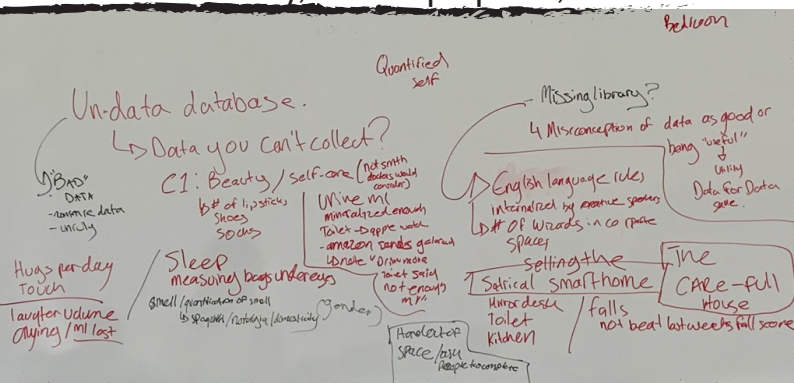 Bedroom
Quantified
self
Un-data database.
↳ Data you can't collect?
"BAD"
DATA
- nonsense data
- unruly
C1: Beauty / self-care (not smth
doctors would
consider)
↳ # of lipsticks
Shoes
Socks
Urine ml
mineralized enough
Toilet → apple watch
- amazon sends gatorade
↳ note "Drink more
toilet said
not enough
ml"
Missing library?
4 Misconception of data as good or
being "useful"
↓
Utility
Data for Data
sake.
English language rules
internalized by speakers
↳ # of wizards in corporate
spaces
Hugs per day
Touch
laughter volume
crying / ml lost
Sleep
measuring bags under eyes
smell / quantification of smell
↳ spaghetti / nostalgia / domesticity (gender)
setting the
Satirical smarthome
Mirror desk
Toilet
Kitchen
The
CARE-full
House
falls
not beat last weeks fall score
Handout of
space / ask
People to complete